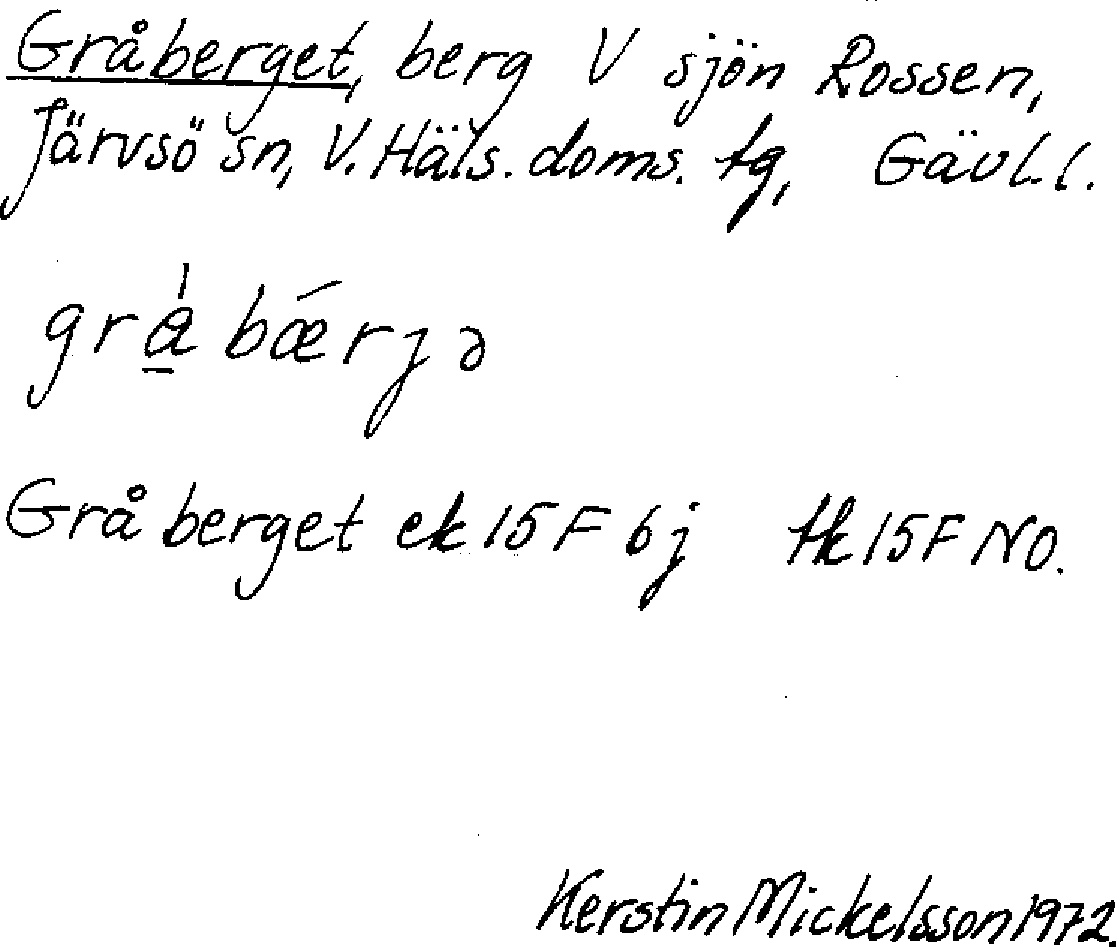 Gråberget, berg V sjön Rossen,
Järvsö sn, V. Häls. doms. tg, Gävl. l.
grǻ̱ bǽrjə
Gråberget ek 15F 6j tk 15F NO.
Kerstin Mickelsson 1972.